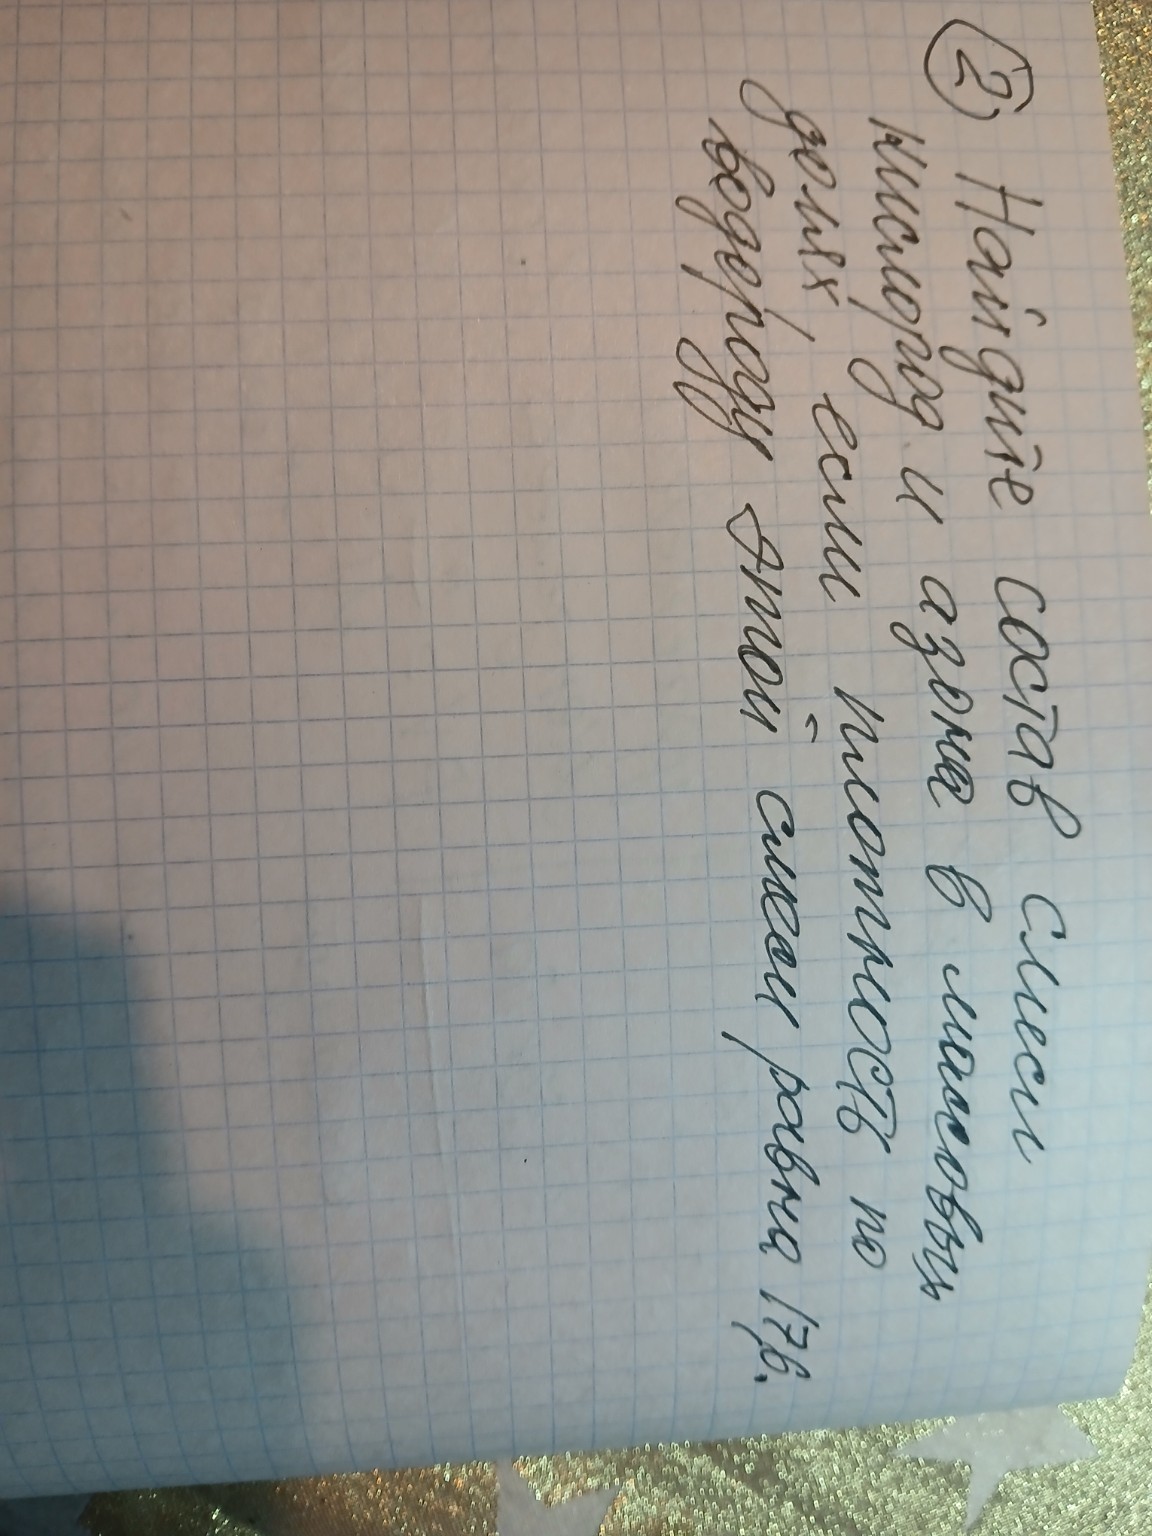 ② Найдите состав смеси
кислород и азона в массовых
долях, если плотность по
водороду этой смеси равна 17,6.